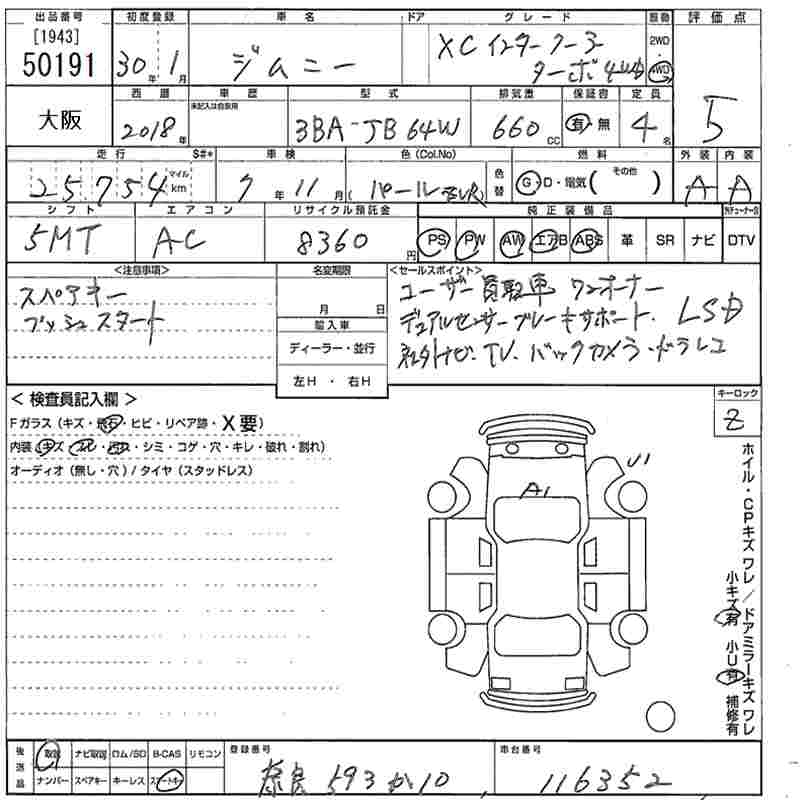 出品番号 初度登録 車名 ドア グレード 駆動 評価点
[1943]
50191 30年 1月 ジムニー XC インタークーラー ターボ 4WD 2WD・4WD 5
大阪 西暦 車歴 型式 排気量 保証書 定員
未記入は自家用
2018年 3BA-JB64W 660cc 有・無 4名
走行 S#* 車検 色(Col.No) 燃料 外装 内装
25754 マイル km 7年 11月 (パール ZVR) 色替 G・D・電気( その他 ) A A
シフト エアコン リサイクル預託金 純正装備品
5MT AC 8360円 PS PW AW エアB ABS 革 SR ナビ DTV
<注意事項> 名変期限 <セールスポイント>
スペアキー
プッシュスタート
月 日
輸入車
ディーラー・並行
左H ・ 右H
ユーザー買取車 ワンオーナー
デュアルセンサーブレーキサポート. LSD
社外ナビ. TV. バックカメラ.ドラレコ
< 検査員記入欄 >
Fガラス(キズ・飛石・ヒビ・リペア跡・X要)
内装(キズ・スレ・・シミ・コゲ・穴・キレ・破れ・割れ)
オーディオ(無し・穴)/タイヤ(スタッドレス)
キーロック
Z
A1
U1
ホイル・CPキズ ワレ / ドアミラーキズ ワレ
小キズ 有 小U 有 補修有
後送品 取説 ナビ取説 ロム/SD B-CAS リモコン
ナンバー スペアキー キーレス スマートキー
登録番号 車台番号
奈良 593 か 10 116352